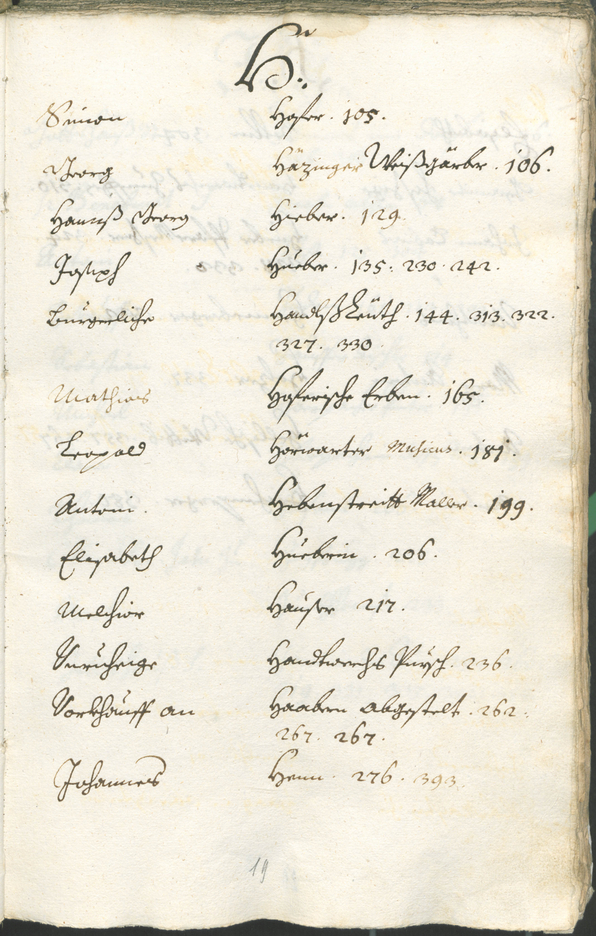 H.
Simon Hofer. 105.
Georg Häzinger Weißgärber. 106.
Hannß Georg Hieber. 129.
Joseph Hueber. 135. 230. 242.
Bürgerliche Handlß Leüth. 144. 313. 322.
327. 330
Mathias Hoferische Erben. 165.
Leopold Hörwarter Musicus. 181.
Antoni. Hebenstreitt Maller. 199.
Elisabeth Hueberin. 206.
Melchior Hauser 217.
Unruheige Handtwerchs Pursch. 236.
Vorkhauff an Haabern abgestelt. 262.
267. 267.
Johannes Henn. 276. 393.
19